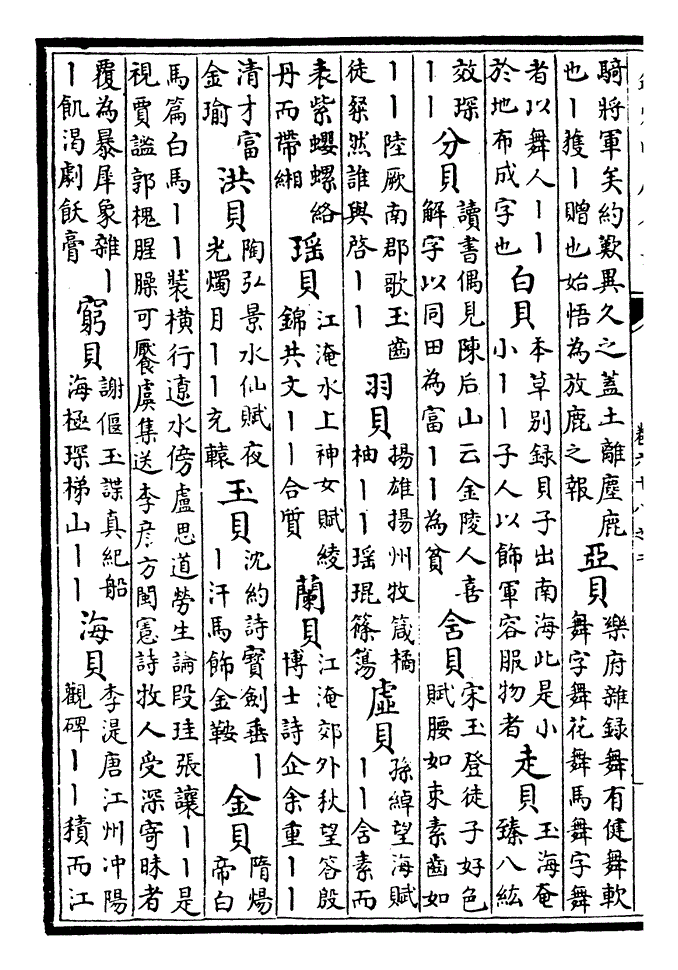 騎將軍芙約歎異久之蓋土離塵鹿
也丨獲丨贈也始悟為放鹿之報
亞貝
樂府雜録舞有健舞軟
舞字舞花舞馬舞字舞
者以舞人丨丨
於地布成字也
白貝
本草别録貝子出南海此是小
小丨丨子人以飾軍容服物者
走貝
玉海奄
臻八紘
效琛
丨丨
分貝
讀書偶見陳后山云金陵人喜
解字以同田為富丨丨為貧
含貝
宋玉登徒子好色
賦腰如束素齒如
丨丨陸厥南郡歌玉齒
徒粲然誰與啓丨丨
羽貝
揚雄揚州牧箴橘
柚丨丨瑶琨篠簜
虛貝
孫綽望海賦
丨丨含素而
表紫蠳螺絡
丹而帶緗
瑶貝
江淹水上神女賦綾
錦共文丨丨合質
蘭貝
江淹郊外秋望答殷
博士詩企余重丨丨
清才富
金瑜
洪貝
陶弘景水仙賦夜
光燭月丨丨充轅
玉貝
沈約詩寶劍垂丨
丨汗馬飾金鞍
金貝
隋煬
帝白
馬篇白馬丨丨裝横行遼水傍盧思道勞生論段珪張讓丨丨是
視賈謐郭槐腥臊可饜虞集送李彦方閩憲詩牧人受深寄昧者
覆為暴犀象雜丨
丨飢渴劇飫膏
窮貝
謝偃玉諜真紀船
海極琛梯山丨丨
海貝
李湜唐江州冲陽
觀碑丨丨積而江